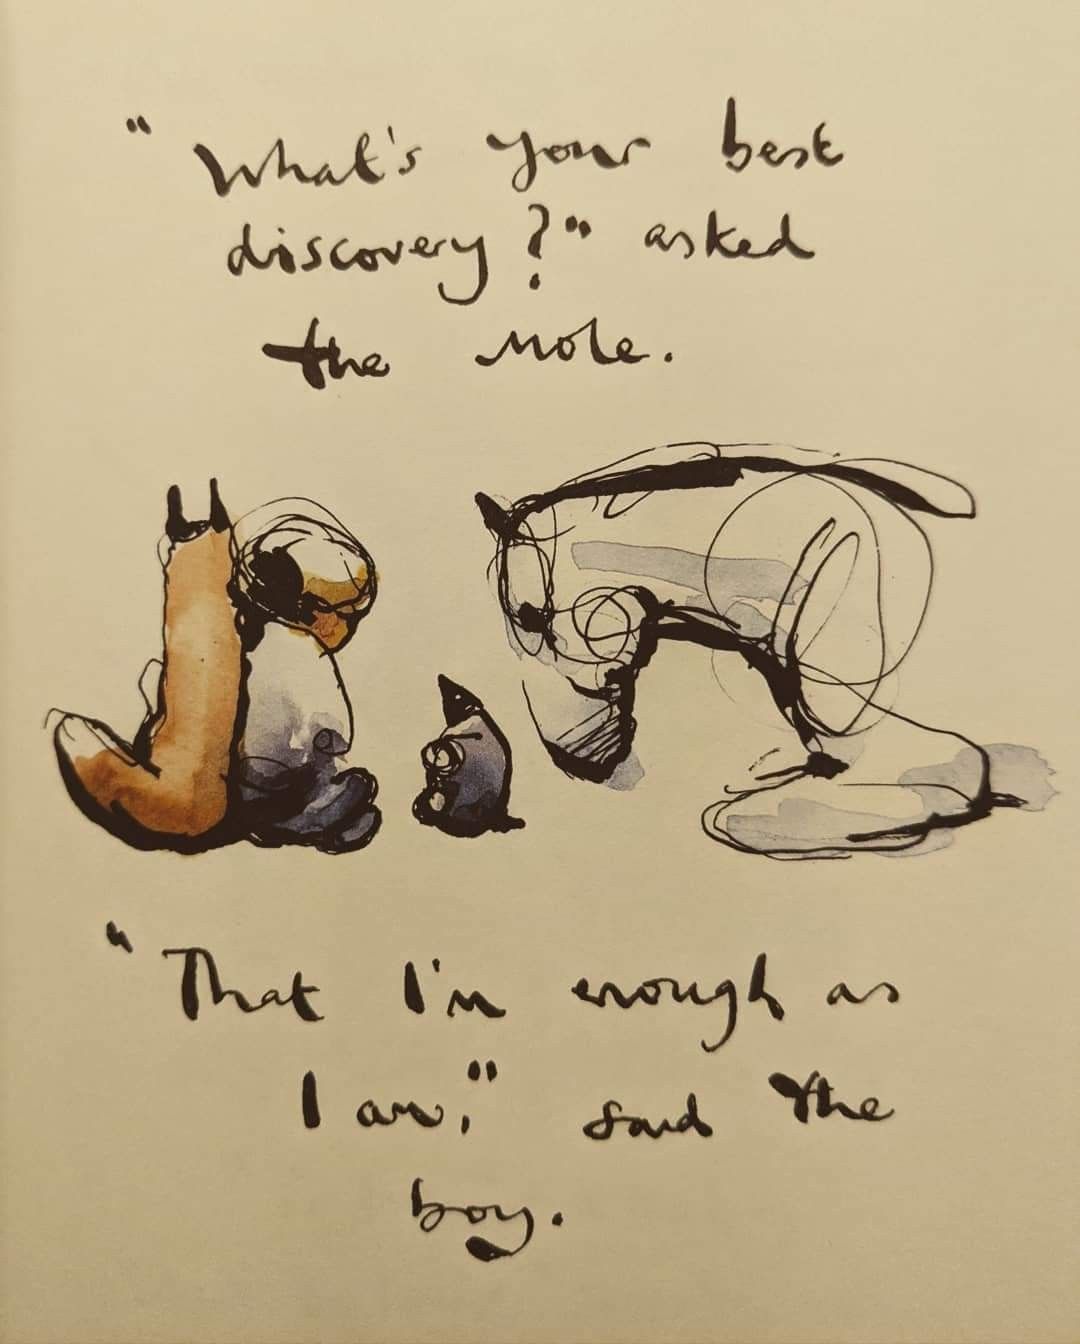 "What's your best
discovery?" asked
the mole.
"That I'm enough as
I am," said the
boy.